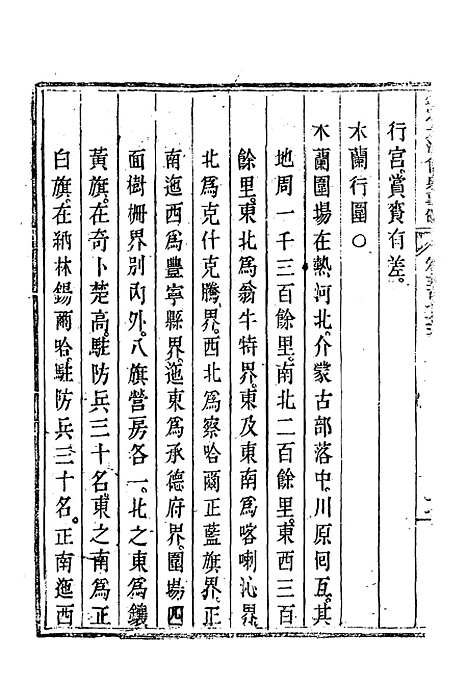 行宮。賞賚有差。
木蘭行圍○
木蘭圍場在熱河北。介蒙古部落中。川原何互。其
地周一千三百餘里。南北二百餘里。東西三百
餘里。東北為翁牛特界。東及東南為喀喇沁界。
北為克什克騰界。西北為察哈爾正藍旗界。正
南迤西為豐寧縣界。迤東為承德府界。圍場四
面樹柵界別內外。八旗營房各一。北之東為鑲
黃旗。在奇卜楚高。駐防兵三十名。東之南為正
白旗。在納林錫爾哈。駐防兵三十名。正南迤西